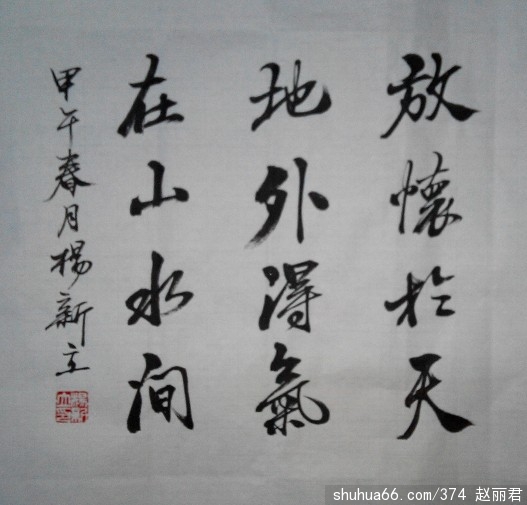 放懷於天
地外得氣
在山水间
甲午春月楊新立
shuhua66.com/374 赵丽君